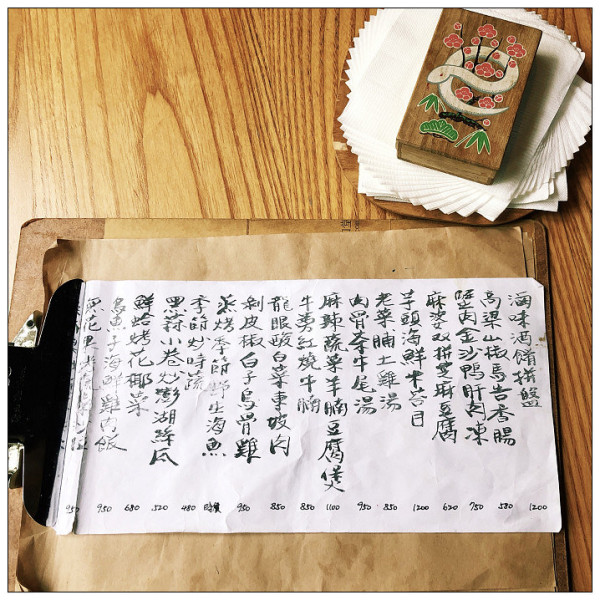 滷味酒餚拼盤 1200
高梁山椒馬告香腸 580
蟹肉金沙鴨肝肉凍 750
麻婆双拼雙麻豆腐 620
芋頭海鮮米苔目 1200
老菜脯土雞湯 850
肉骨茶牛尾湯 950
麻辣蔬菜羊腩豆腐煲 1100
牛蒡紅燒牛腩 850
龍眼酸白菜東坡肉 850
剝皮椒白子烏骨雞 950
蒸烤季節野生海魚 時價
季節炒時蔬 480
黑蒜小卷炒澎湖絲瓜 520
鮮蛤烤花椰菜 680
烏魚子海鮮雞肉飯 950
950